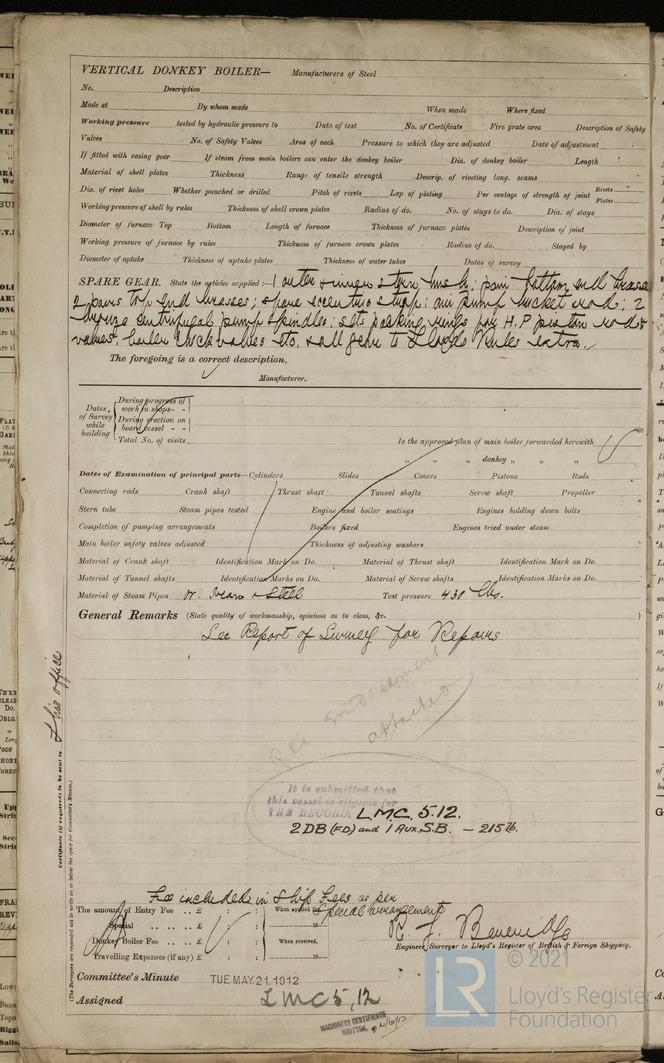 VERTICAL DONKEY BOILER— Manufacturers of Steel
No. Description
Made at By whom made When made Where fixed
Working pressure tested by hydraulic pressure to Date of test No. of Certificate Fire grate area Description of Safety
Valves No. of Safety Valves Area of each Pressure to which they are adjusted Date of adjustment
If fitted with easing gear If steam from main boilers can enter the donkey boiler Dia. of donkey boiler Length
Material of shell plates Thickness Range of tensile strength Descrip. of riveting long. seams
Dia. of rivet holes Whether punched or drilled Pitch of rivets Lap of plating Per centage of strength of joint Rivets Plates
Working pressure of shell by rules Thickness of shell crown plates Radius of do. No. of stays to do. Dia. of stays
Diameter of furnace Top Bottom Length of furnace Thickness of furnace plates Description of joint
Working pressure of furnace by rules Thickness of furnace crown plates Radius of do. Stayed by
Diameter of uptake Thickness of uptake plates Thickness of water tubes Dates of survey
SPARE GEAR. State the articles supplied:— 1 outer & inner stern bush: pair bottom end brasses
2 pairs top end brasses; spare eccentric strap: air pump bucket rod; 2
bronze centrifugal pump spindles: sets packing rings for H.P piston rods
valves, boiler check valves etc, & all gear to Lloyds Rules extra.
The foregoing is a correct description,
Manufacturer.
Dates of Survey while building
During progress of work in shops - -
During erection on board vessel - -
Total No. of visits
Is the approved plan of main boiler forwarded herewith
" " " donkey " " "
Dates of Examination of principal parts—Cylinders Slides Covers Pistons Rods
Connecting rods Crank shaft Thrust shaft Tunnel shafts Screw shaft Propeller
Stern tube Steam pipes tested Engine and boiler seatings Engines holding down bolts
Completion of pumping arrangements Boilers fixed Engines tried under steam
Main boiler safety valves adjusted Thickness of adjusting washers
Material of Crank shaft Identification Mark on Do. Material of Thrust shaft Identification Mark on Do.
Material of Tunnel shafts Identification Marks on Do. Material of Screw shafts Identification Marks on Do.
Material of Steam Pipes Steel Test pressure 430 lbs.
General Remarks (State quality of workmanship, opinions as to class, &c.
See Report of Survey for Repairs
endorsement
attached
It is submitted that
this vessel is eligible for
THE RECORD. L.M.C. 5.12.
2DB (FD) and 1 Aux. S.B. — 215 lb.
Certificate (if required) to be sent to This office
(The Surveyors are requested not to write on or below the space for Committee's Minute.)
Fee included in Ship Fees as per
Special arrangement
The amount of Entry Fee .. £ : : When applied for,
Special .. .. £ : :
Donkey Boiler Fee .. .. £ : : When received,
Travelling Expenses (if any) £ : :
Engineer Surveyor to Lloyd's Register of British & Foreign Shipping.
Committee's Minute TUE. MAY. 21. 1912
Assigned LMC 5,12
MACHINERY CERTIFICATE
WRITTEN.
LR
© 2021
Lloyd's Register
Foundation